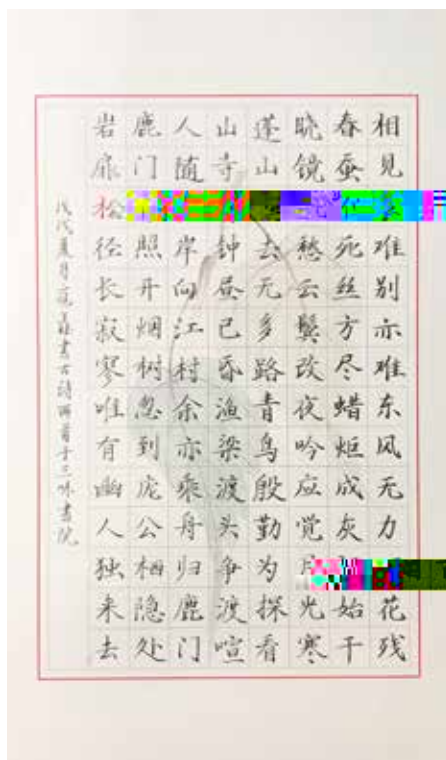 相见难别亦难东风无力花残
春蚕死丝方尽蜡炬成灰始干
晓镜愁云鬓改夜吟应觉光寒
蓬山去无多路青鸟殷勤为探看
山寺钟昼已昏渔梁渡头争渡喧
人随岸向江村余亦乘舟归鹿门
鹿门照开烟树忽到庞公栖隐处
岩扉松径长寂寥唯有幽人独来去
戊戌夏月书古诗两首于三味书院